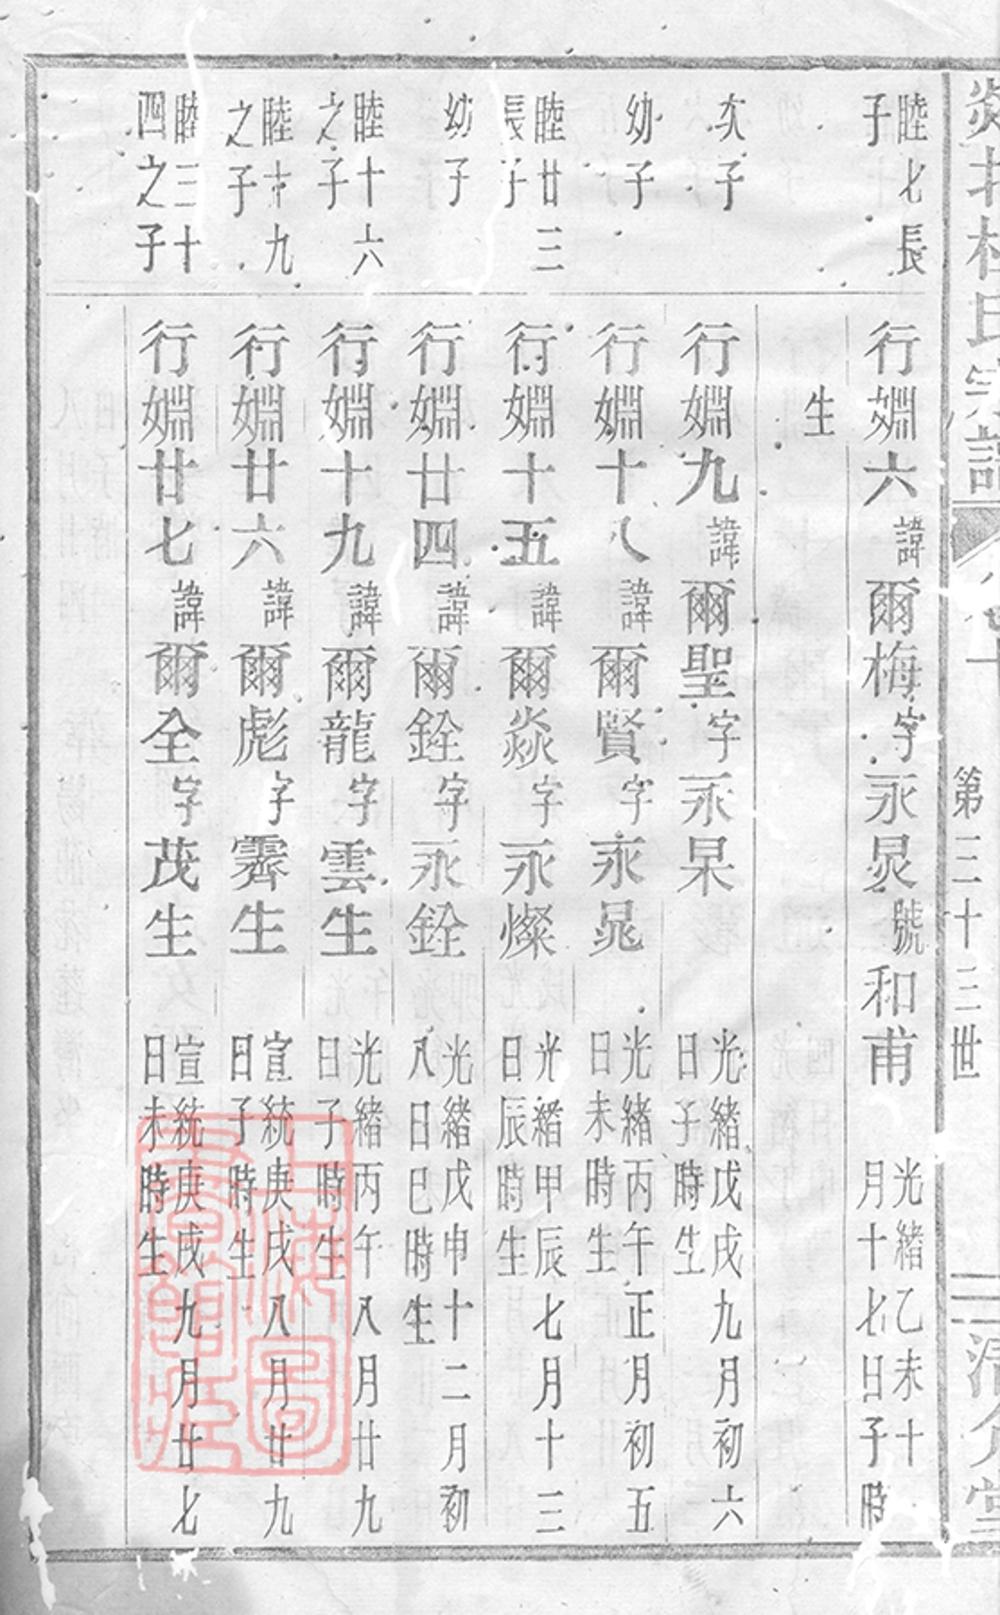 杜氏宗譜
第三十三世
清介堂
睦七長子
行嫺六諱爾梅字永炅號和甫
光緒乙未十月十七日子時生
次子
行嫺九諱爾聖字永杲
光緒戊戌九月初六日子時生
幼子
行嫺十八諱爾賢字永晃
光緒丙午正月初五日未時生
睦廿三長子
行嫺十五諱爾焱字永燦
光緒甲辰七月十三日辰時生
幼子
行嫺廿四諱爾銓字永銓
光緒戊申十二月初八日巳時生
睦十六之子
行嫺十九諱爾龍字雲生
光緒丙午八月廿九日子時生
睦十九之子
行嫺廿六諱爾彪字霽生
宣統庚戌八月廿九日子時生
睦三十四之子
行嫺廿七諱爾全字茂生
宣統庚戌九月廿七日未時生
上海圖書館藏